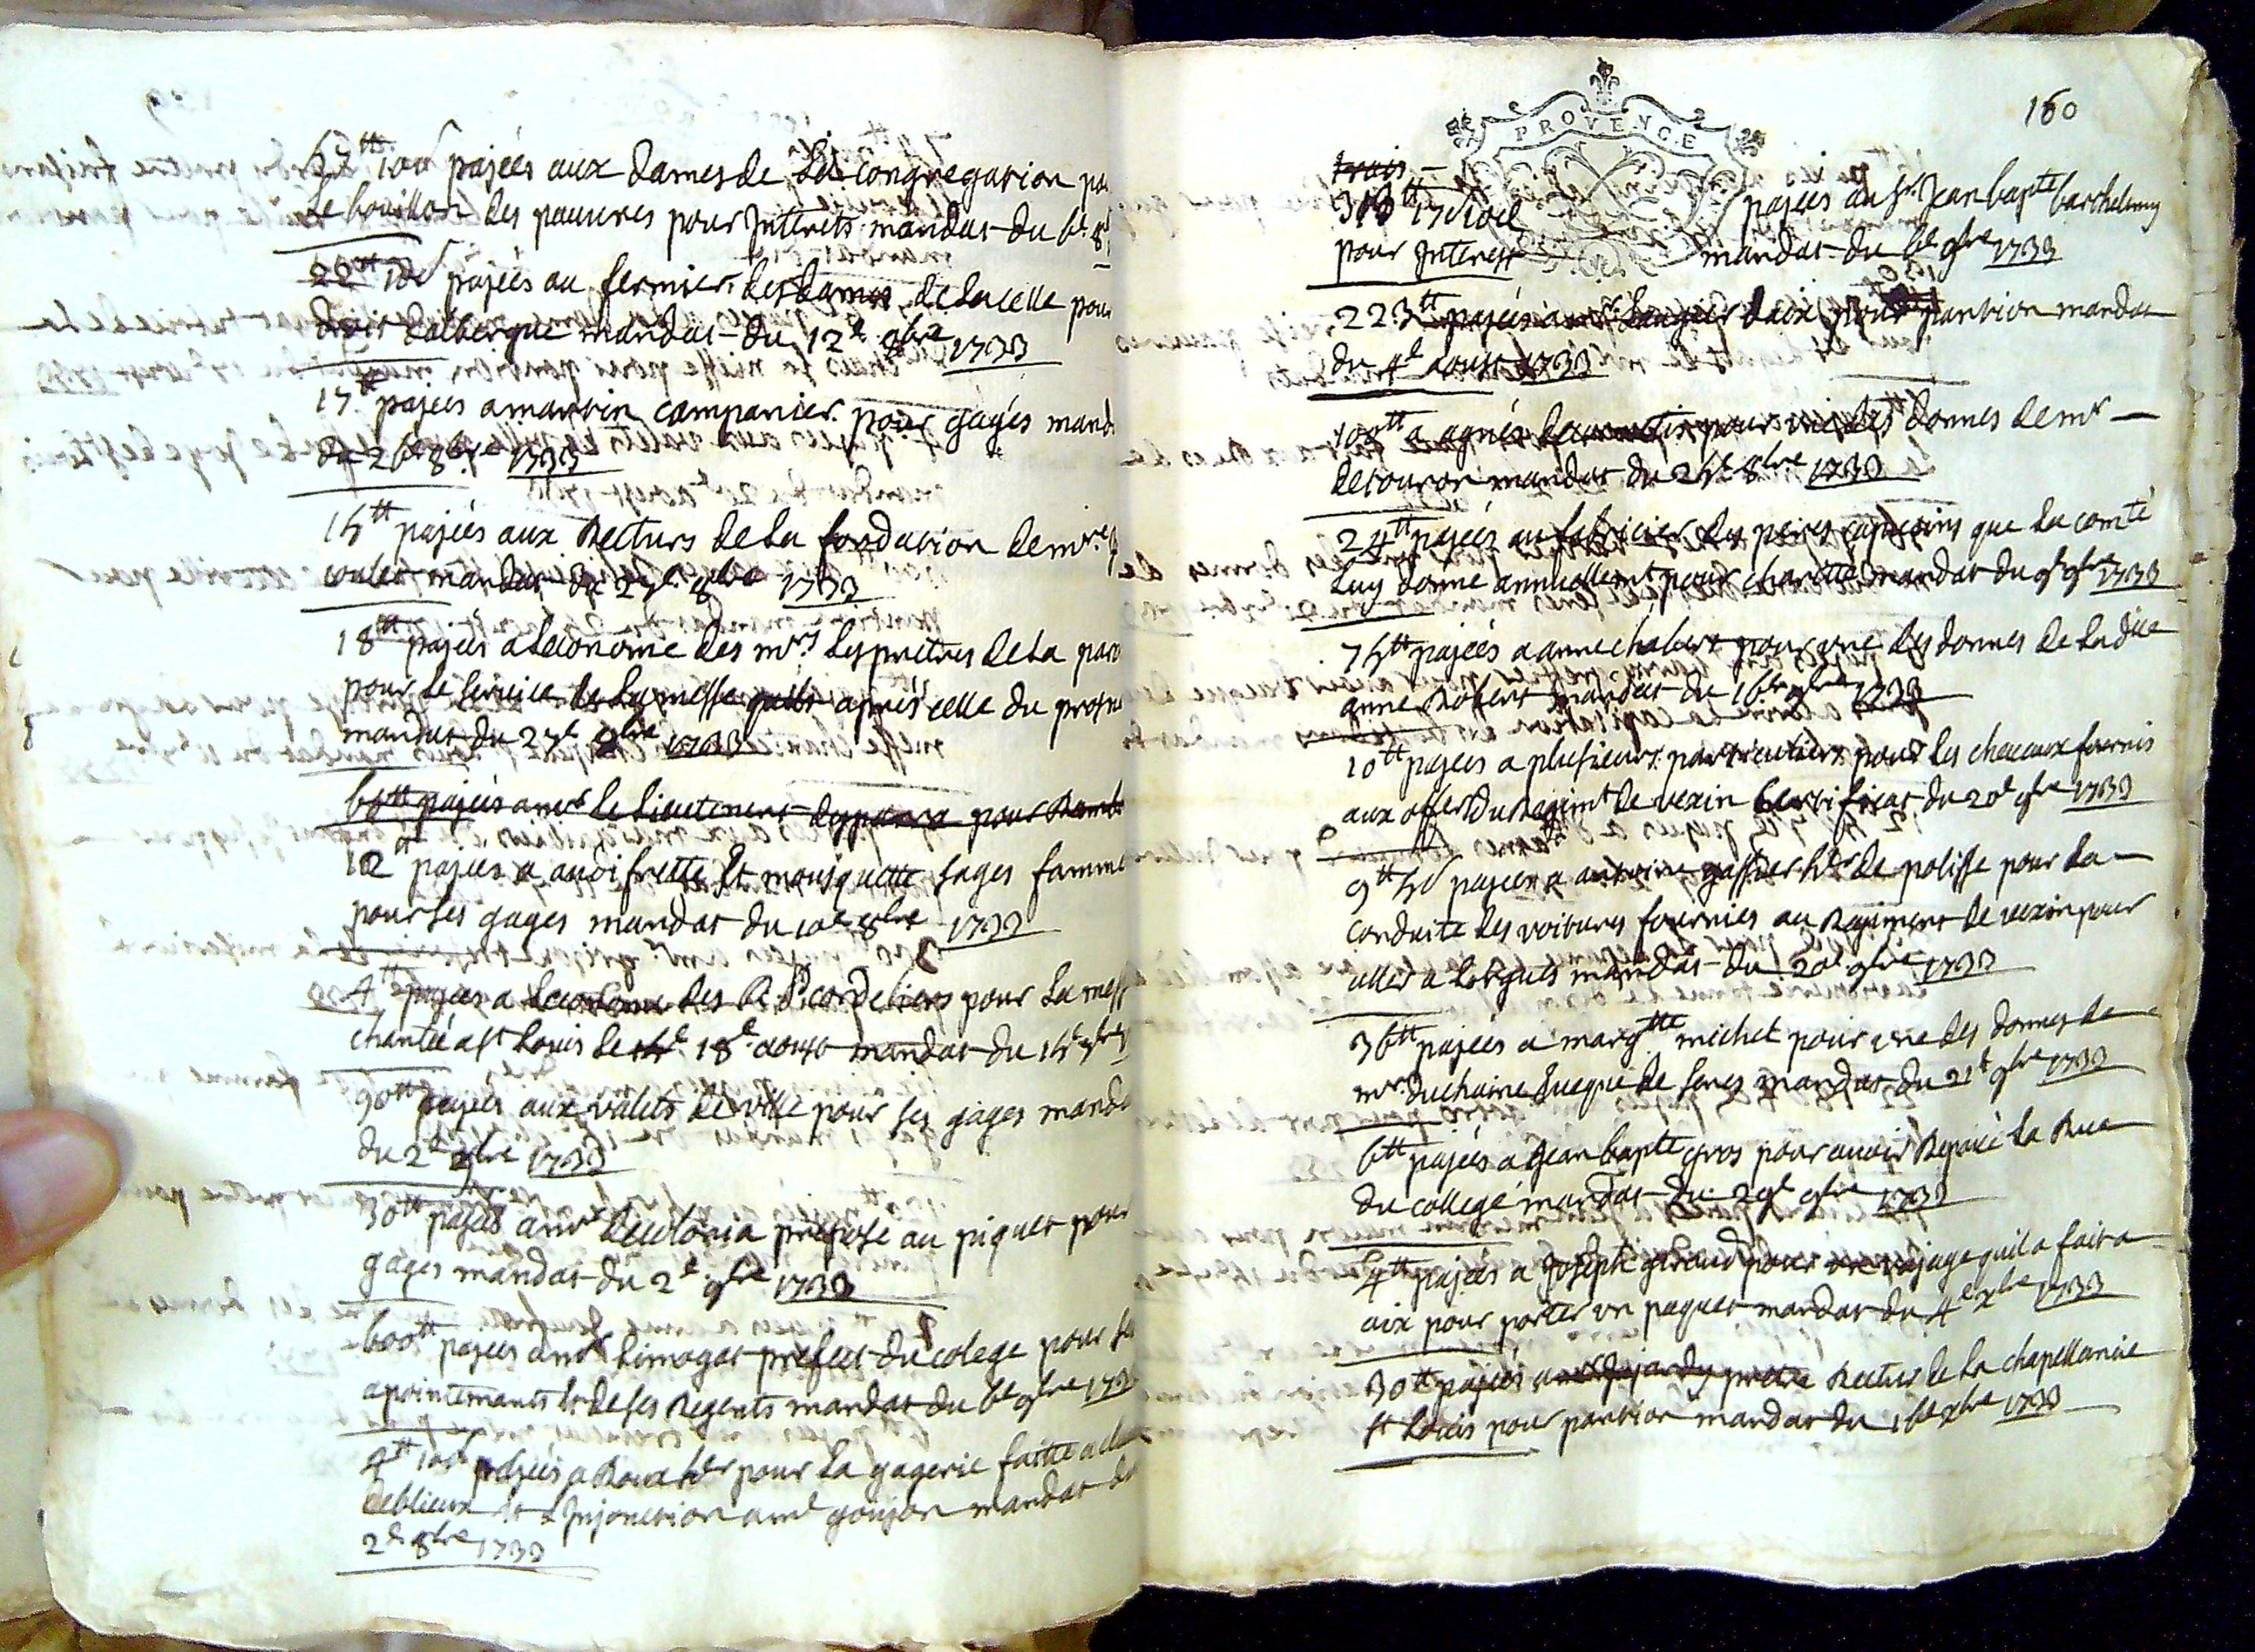 62tt 10s payées aux Dames de La Congregation po
Le bouillon des pauures pour Interets mandat du 6e 8
22tt 10s payées au fermier des Dames de La celle pour
droit dalbergue mandat du 12e 8bre 1733
17tt payées a martin companier pour gages mand
du 26e 8bre 1733
15tt payées aux Recturs de La fondation de mre
mandat du 27e 8bre 1733
18tt payées a Leconome des mrs Les pretres de La paro
pour Le seruice de La messe quils apres celle du prosne
mandat du 27e 8bre 1733
60tt payées a mr Le Lieutenent pour Remb
12tt payées a audifrette Et mousquette sages famme
pour ses gages mandat du 10e 8bre 1733
4tt payées a Leconome des R. P. cordeliers pour La mess
chantée a st Louis Le 18e aoust mandat du 15e
90tt payées aux valets de ville pour ses gages manda
du 2e 9bre 1733
30tt payées a mr preposé au piquet pour
gages mandat du 2e 9bre 1733
600tt payées a mr Limogat prefect du colege pour se
apointements Et de ses Regents mandat du 6e 9bre 173
4tt 10s payées a Roux her pour La gagerie faitte a
deblieux Et Injonction a mr goujon mandat du
2e 8bre 1733
160
PROVENCE
trois
313tt 17s payées au sr Jean bapte barthelemy
pour Interest mandat du 6e 9bre 1733
223tt payées a mr Laugier daix pour pantion mandat
du 4e aoust 1733
100tt a agnés pour vne des donnes de mr
decouron mandat du 25e 8bre 1733
24tt payées au fabricier des peires capucins que La comté
Luy donne annuellemt pour charitté mandat du 9e 9bre 1733
75tt payées a anne chabert pour vne des donnes de La dite
anne Robert mandat du 16e 9bre 1733
10tt payées a plusieurs particuliers pour Les cheuaux fournis
aux offers du Regimt de vexin Certificat du 20e 9bre 1733
9tt 5s payées a antoine gassier her de polisse pour La
conduite des voitures fournies au Regiment de vexin pour
aller a Lorgues mandat du 20e 9bre 1733
36tt payées a margtte michel pour vne des donnes de
mr duchaine Eueque de senez mandat du 21e 9bre 1733
6tt payées a Jean bapte gros pour auoir Reparé La Rue
du college mandat du 29e 9bre 1733
4tt payées a Joseph giraud pour vn voyage quil a fait a
aix pour porter vn paquet mandat du 4e xbre 1733
30tt payées a pretre Rectur de La chapellenie
st Louis pour pantion mandat du 16e xbre 1733